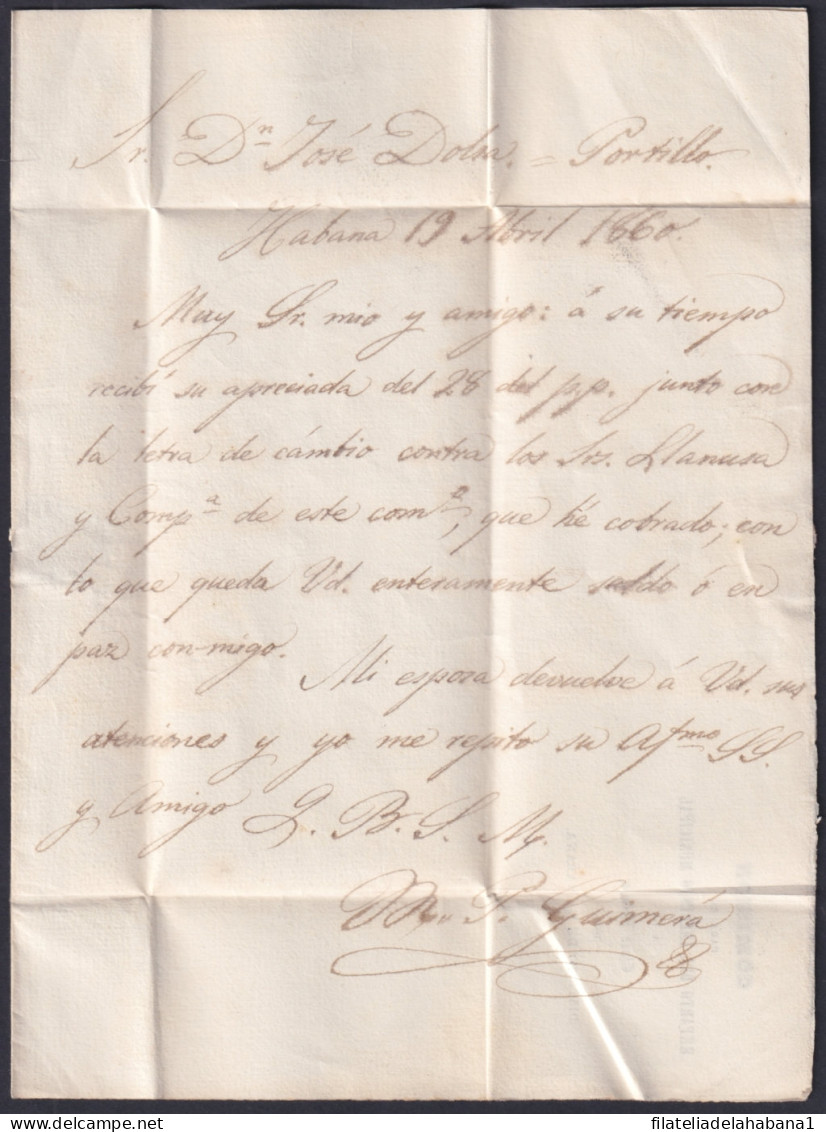 Sr. Dn. José Dolsa. = Portillo.
Habana 19 Abril 1860.
Muy Sr. mio y amigo: á su tiempo
recibí su apreciada del 28 del p.p. junto con
la letra de cámbio contra los Srs. Llanusa
y Compa. de este como., que hé cobrado; con
lo que queda Vd. enteramente saldo ó en
paz con-migo.
Mi esposa devuelve á Vd. sus
atenciones y yo me repito su Afmo SS.
y Amigo Q. B. S. M.
P. Guimerá
filateliadelahabana1